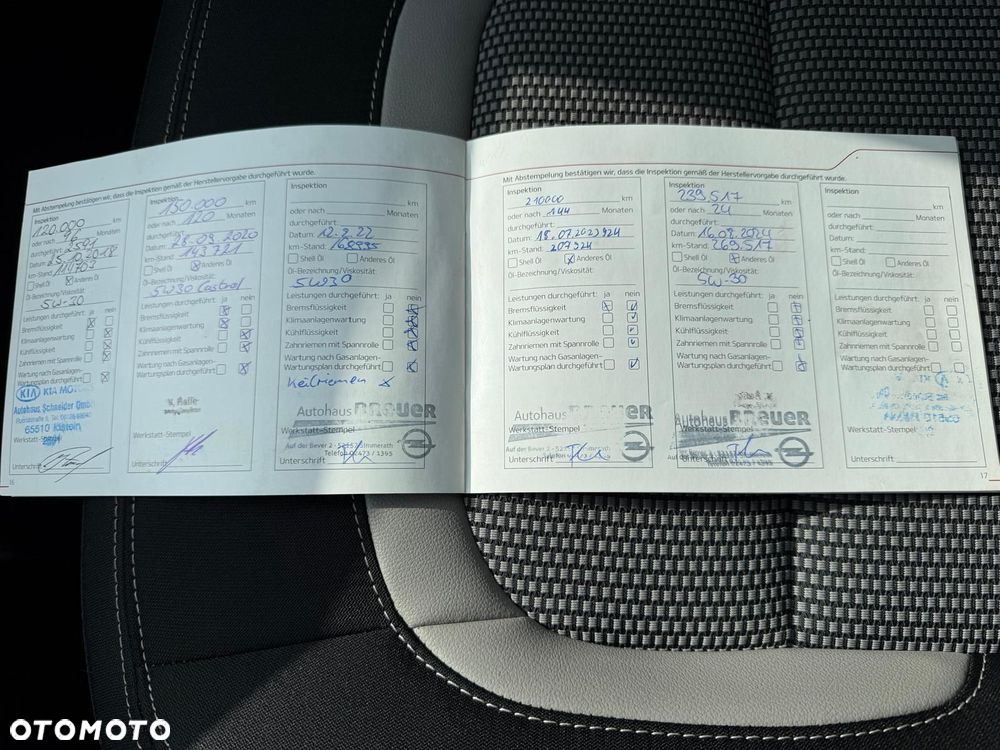 Mit Abstempelung bestätigen wir, dass die Inspektion gemäß der Herstellervorgabe durchgeführt wurde.
Inspektion
120.000 km
oder nach Monaten
durchgeführt:
Datum: 25.10.2018
km-Stand:
Shell Öl Anderes Öl
Öl-Bezeichnung/Viskosität:
5W-30
Leistungen durchgeführt: ja nein
Bremsflüssigkeit
Klimaanlagenwartung
Kühlflüssigkeit
Zahnriemen mit Spannrolle
Wartung nach Gasanlagen-
Wartungsplan durchgeführt
KIA
Autohaus Schneider GmbH
65510 Idstein
Werkstatt-Stempel
Unterschrift
16
Inspektion
150.000 km
oder nach 120 Monaten
durchgeführt:
Datum: 28.09.2020
km-Stand: 143721
Shell Öl Anderes Öl
Öl-Bezeichnung/Viskosität:
5W30 Castrol
Leistungen durchgeführt: ja nein
Bremsflüssigkeit
Klimaanlagenwartung
Kühlflüssigkeit
Zahnriemen mit Spannrolle
Wartung nach Gasanlagen-
Wartungsplan durchgeführt
Werkstatt-Stempel
Unterschrift
Inspektion
km
oder nach Monaten
durchgeführt:
Datum: 12.9.22
km-Stand:
Shell Öl Anderes Öl
Öl-Bezeichnung/Viskosität:
5W30
Leistungen durchgeführt: ja nein
Bremsflüssigkeit
Klimaanlagenwartung
Kühlflüssigkeit
Zahnriemen mit Spannrolle
Wartung nach Gasanlagen-
Wartungsplan durchgeführt
Keilriemen x
Autohaus BREUER
Werkstatt-Stempel
Auf der Bever 2 - Simmerath
Telefon 02473 / 1395
Unterschrift
Mit Abstempelung bestätigen wir, dass die Inspektion gemäß der Herstellervorgabe durchgeführt wurde.
Inspektion
210000 km
oder nach 144 Monaten
durchgeführt:
Datum: 18.07.2023
km-Stand: 207924
Shell Öl Anderes Öl
Öl-Bezeichnung/Viskosität:
Leistungen durchgeführt: ja nein
Bremsflüssigkeit
Klimaanlagenwartung
Kühlflüssigkeit
Zahnriemen mit Spannrolle
Wartung nach Gasanlagen-
Wartungsplan durchgeführt
Autohaus BREUER
Werkstatt-Stempel
Auf der Bever 2 - Simmerath
Telefon 02473 / 1395
Unterschrift
Inspektion
239.517 km
oder nach 24 Monaten
durchgeführt:
Datum: 16.09.2024
km-Stand: 269.517
Shell Öl Anderes Öl
Öl-Bezeichnung/Viskosität:
5W-30
Leistungen durchgeführt: ja nein
Bremsflüssigkeit
Klimaanlagenwartung
Kühlflüssigkeit
Zahnriemen mit Spannrolle
Wartung nach Gasanlagen-
Wartungsplan durchgeführt
Autohaus BREUER
Werkstatt-Stempel
Unterschrift
Inspektion
km
oder nach Monaten
durchgeführt:
Datum:
km-Stand:
Shell Öl Anderes Öl
Öl-Bezeichnung/Viskosität:
Leistungen durchgeführt: ja nein
Bremsflüssigkeit
Klimaanlagenwartung
Kühlflüssigkeit
Zahnriemen mit Spannrolle
Wartung nach Gasanlagen-
Wartungsplan durchgeführt
Werkstatt-Stempel
Unterschrift
17
OTOMOTO